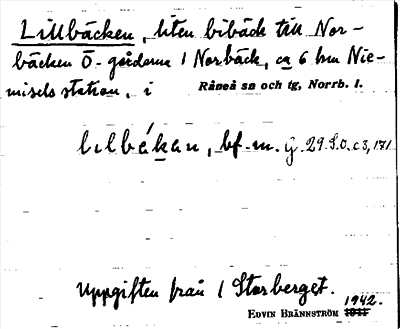 Lillbäcken, liten bibäck till Nor-
bäcken Ö. gårdarna i Norbäck, ca 6 km Nie-
misels station, i Råneå sn och tg, Norrb. l.
lılbákan, bf. m. G. 29. S.O. c3, 171
Uppgiften från i Storberget.
1942.
EDVIN BRÄNNSTRÖM 1941